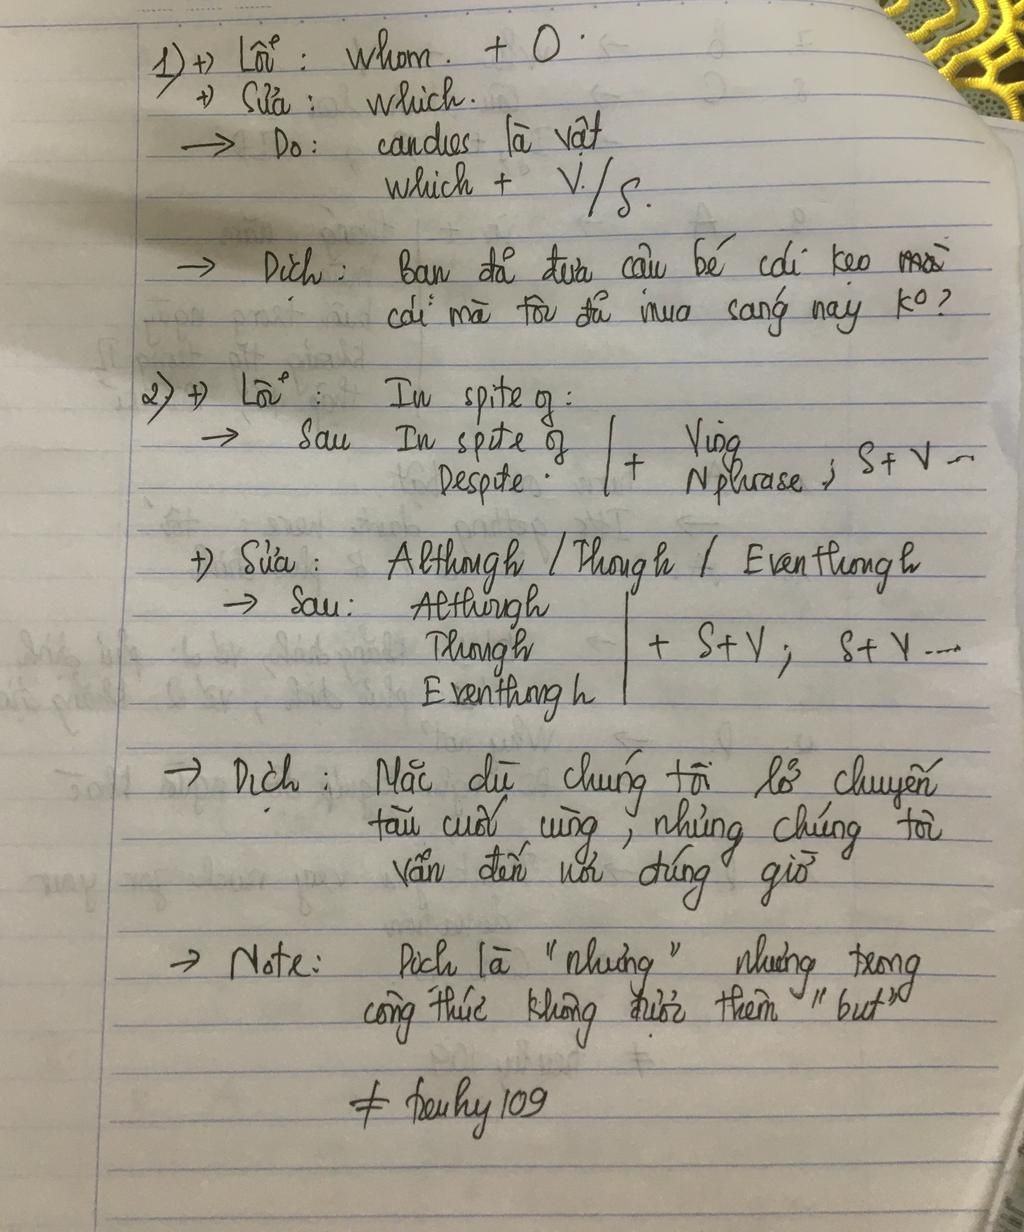 1) +) Lỗi : whom. + O.
+) Sửa : which.
→ Do : candies là vật
which + V./S.
→ Dịch : Bạn đã đưa cậu bé cái kẹo mà
cái mà tôi đã mua sáng nay ko?
2) +) Lỗi : In spite of :
→ Sau In spite of | + Ving
Despite . Nphrase , S + V ...
+) Sửa : Although / Though / Eventhough
→ Sau : Although
Though | + S + V , S + V ....
Eventhough
→ Dịch : Mặc dù chúng tôi lỡ chuyến
tàu cuối cùng , nhưng chúng tôi
vẫn đến nơi đúng giờ
→ Note : Dịch là "nhưng" nhưng trong
công thức không được thêm "but"